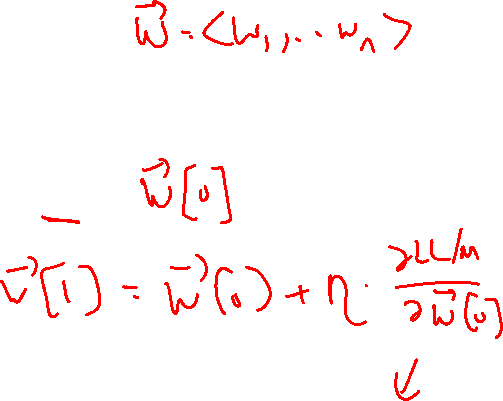 w⃗ = <w₁,,.. wₙ>
w⃗[0]
w⃗[1] = w⃗(0) + η · ∂LL/M / ∂w⃗[0]